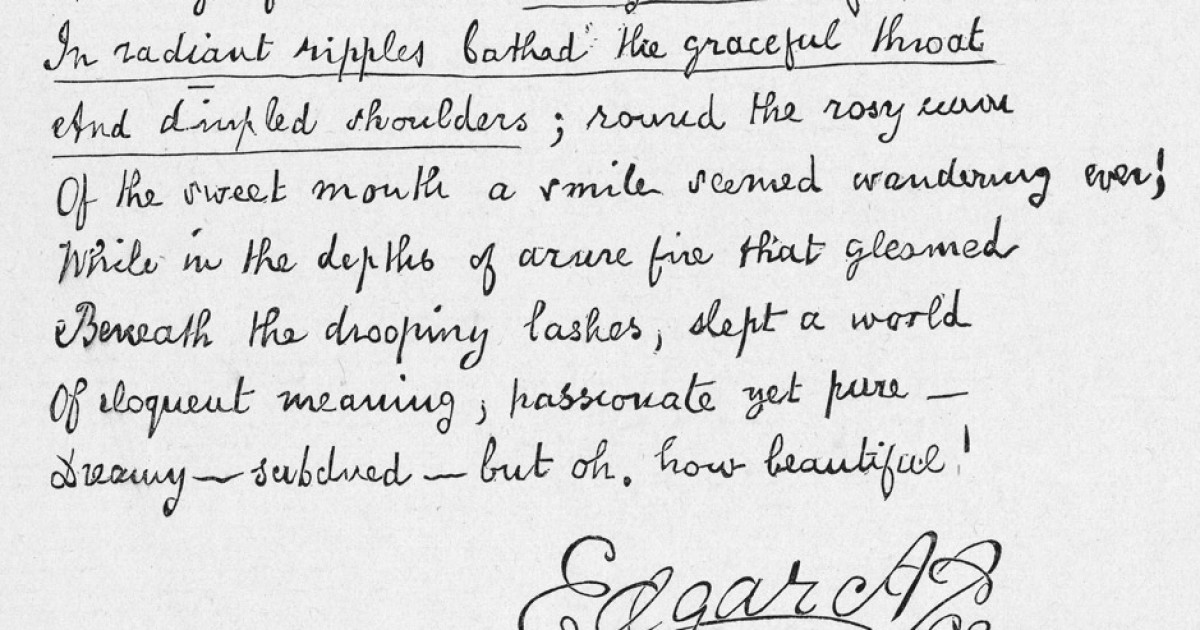 In radiant ripples bathed the graceful throat
And dimpled shoulders; round the rosy curve
Of the sweet mouth a smile seemed wandering ever;
While in the depths of azure fire that gleamed
Beneath the drooping lashes, slept a world
Of eloquent meaning, passionate yet pure —
Dreamy — subdued — but oh. how beautiful!
Edgar A